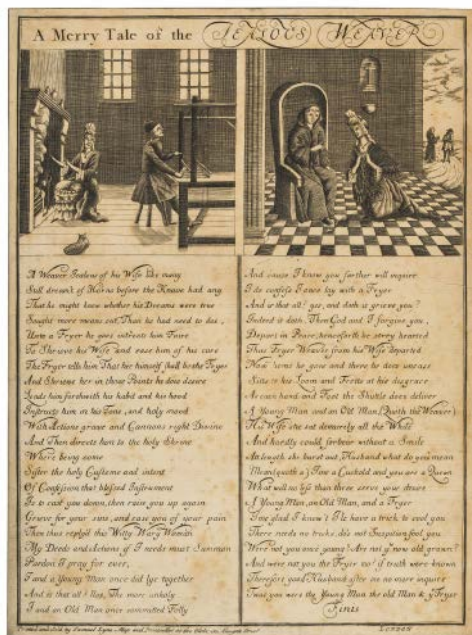 A Merry Tale of the JEALOUS WEAVER
A Weaver Jealous of his Wife like many
Still dream't of Horns before the Knave had any
That he might know whether his Dreams were true
Sought more means out, Than he had need to doe,
Unto a Fryer he goes intreats him Faire
To Shrieve his Wife and ease him of his care
The Fryer tells him That he himself shall be the Fryer
And Shrieve her in those Points he does desire
Lends him forthwith his habit and his hood
Instructs him in his Tone, and holy mood
With Actions grave and Cannons right Divine
And Then directs him to the holy Shrine
Where being come
Sister the holy Custome and intent
Of Confession that blessed Instrument
Is to cast you down, then raise you up again
Grieve for your sins, and ease you of your pain
Then thus replyd this Witty Wary Woman
My Deeds and Actions if I needs must Summon
Pardon I pray for over,
I and a Young Man once did lye together
And is that all? Noe, The more unholy
I and an Old Man once committed Folly
And cause I know you farther will require
I do confess I once lay with a Fryer
And is that all? yes, and doth it grieve you?
Indeed it doth. Then God and I forgive you,
Depart in Peace, henceforth be sorry hearted
Thus Fryer Weaver from his Wife departed
Now home he goes and there he does uncase
Sitts in his Loom and Fretts at his disgrace
At each hand and Foot the Shuttle does deliver
A Young Man and an Old Man (Quoth the Weaver)
His Wife she sat demurely all the While
And hardly could forbear without a Smile
At length she burst out, Husband what do you mean
Mean (quoth a) I'me a Cuckold and you are a Quean
What will no less than three serve your desire
A Young Man, an Old Man, and a Fryer
I'me glad I know't I'le have a trick to cool you
There needs no tricks, let's not Suspition fool you
Were not you once young? Are not y.e now old grown?
And were not you the Fryer too? if truth were known
Therefore good Husband after no more inquire
Twas you were the Young Man the old Man & y.e Fryer
FINIS
Printed and Sold by Samuel Lyne Map and Printseller at the Globe in Newgate Street LONDON